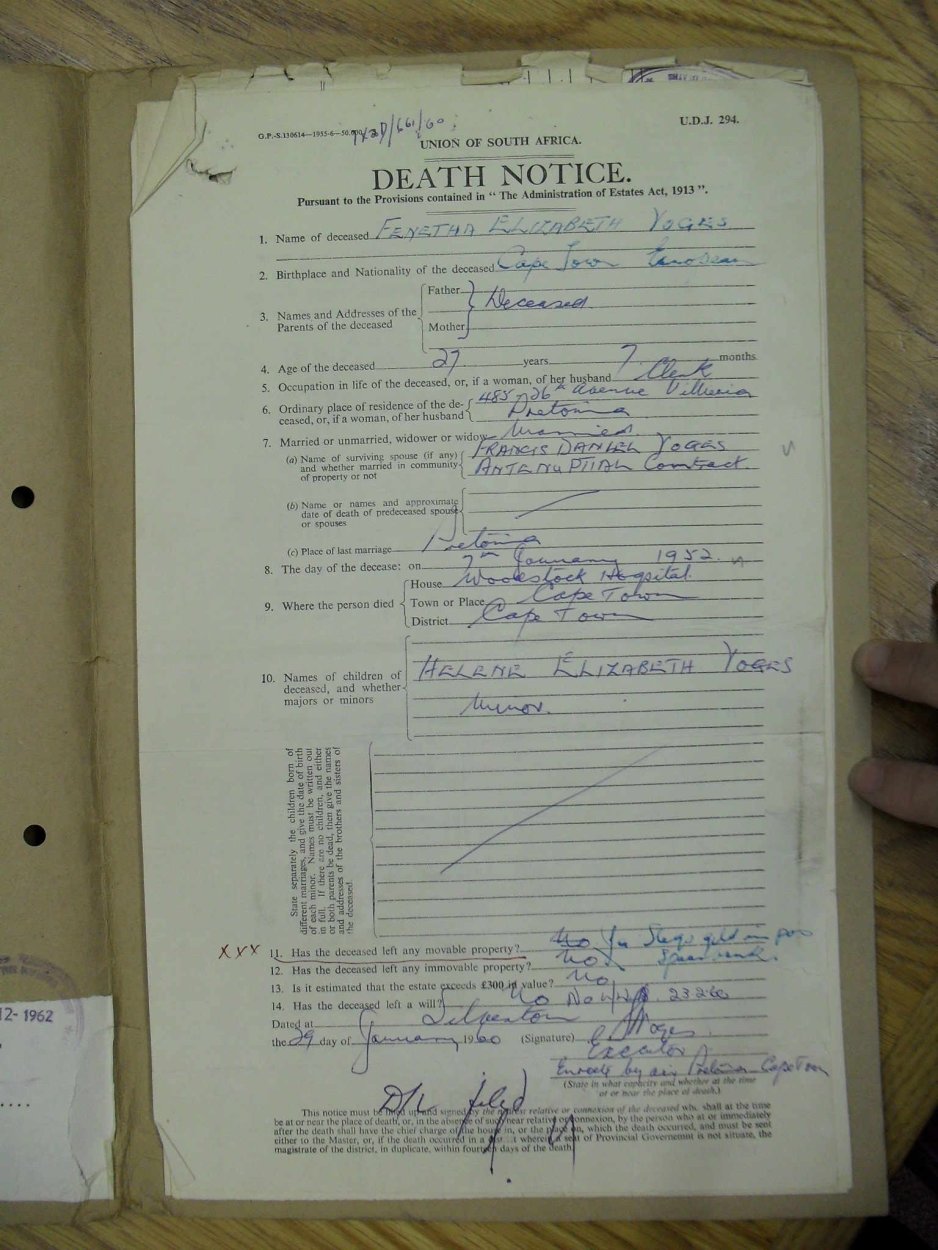 U.D.J. 294.
G.P.-S.130614—1955-6—50,000
UNION OF SOUTH AFRICA.
DEATH NOTICE.
Pursuant to the Provisions contained in “ The Administration of Estates Act, 1913 ”.
1. Name of deceased FENETHA ELIZABETH VOGES
2. Birthplace and Nationality of the deceased Cape Town European
3. Names and Addresses of the Parents of the deceased
Father
Mother
Deceased
4. Age of the deceased 27 years 7 months
5. Occupation in life of the deceased, or, if a woman, of her husband Clerk
6. Ordinary place of residence of the deceased, or, if a woman, of her husband
485 - 26th Avenue Villieria
Pretoria
7. Married or unmarried, widower or widow Married
(a) Name of surviving spouse (if any) and whether married in community of property or not
FRANCIS DANIEL VOGES
ANTENUPTIAL Contract
(b) Name or names and approximate date of death of predeceased spouse or spouses
(c) Place of last marriage Pretoria
8. The day of the decease: on 7th January 1952.
9. Where the person died
House Woodstock Hospital
Town or Place Cape Town
District Cape Town
10. Names of children of deceased, and whether majors or minors
HELENE ELIZABETH VOGES
Minor.
State separately the children born of
different marriages, and give the date of birth
of each minor. Names must be written out
in full. If there are no children, and either
or both parents be dead, then give the names
and addresses of the brothers and sisters of
the deceased.
XXX 11. Has the deceased left any movable property? No
12. Has the deceased left any immovable property? No
13. Is it estimated that the estate exceeds £300 in value? No
14. Has the deceased left a will? No
Dated at Silverton
the 29 day of January 1960 (Signature) Voges
Executor
Enroute by air Pretoria Cape Town
(State in what capacity and whether at the time
or at or near the place of death.)
This notice must be filled up and signed by the nearest relative or connexion of the deceased who shall at the time
be at or near the place of death, or, in the absence of such near relative or connexion, by the person who at or immediately
after the death shall have the chief charge of the house in, or the place on, which the death occurred, and must be sent
either to the Master, or, if the death occurred in a district wherein a seat of Provincial Government is not situate, the
magistrate of the district, in duplicate, within fourteen days of the death.
12- 1962